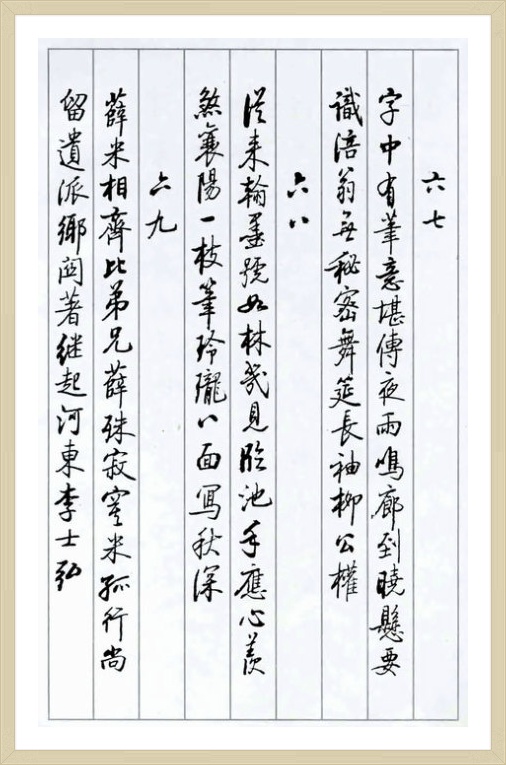 六七
字中有笔意堪傳夜雨鳴廊到曉懸要
識涪翁無秘密舞筵長袖柳公權
六八
從来翰墨號如林幾見臨池手應心羨
煞襄陽一枝筆玲瓏八面寫秋深
六九
薛米相齊比弟兄薛殊寂寞米孤行尚
留遺派鄉閭著继起河東李士弘